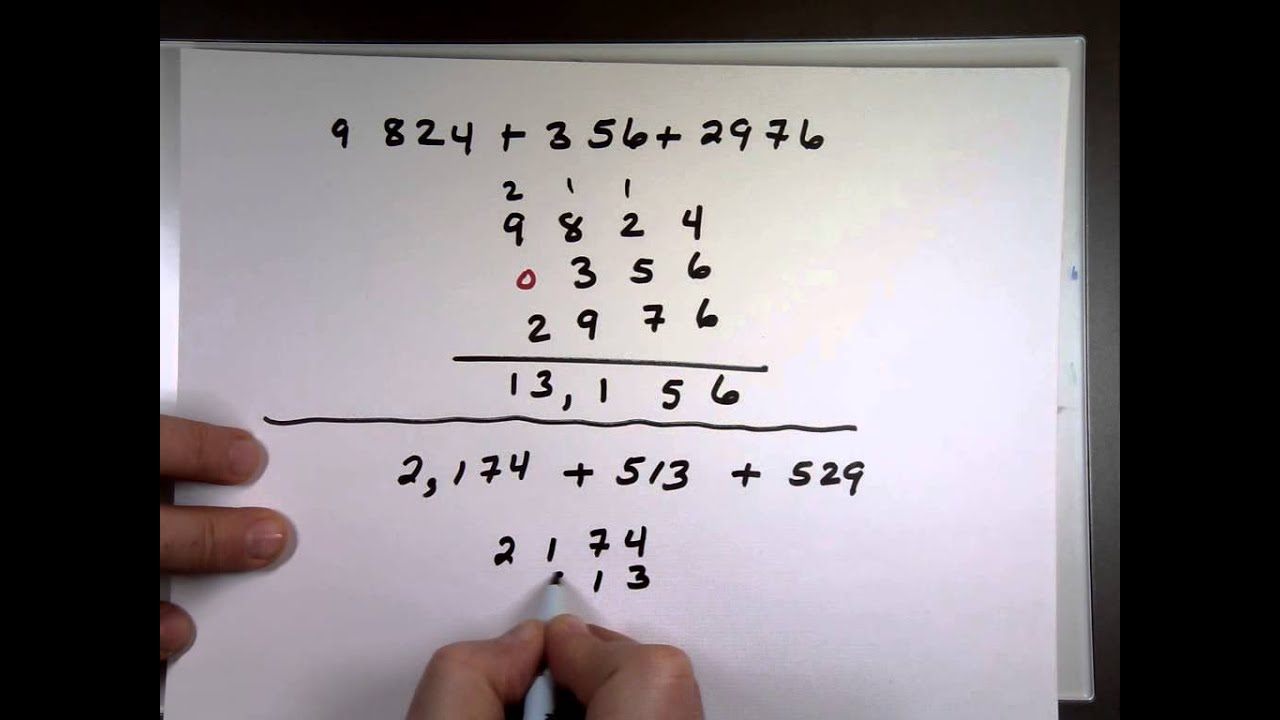 9 824 + 356 + 2976
2 1 1
9 8 2 4
0 3 5 6
2 9 7 6
13,1 5 6
2,174 + 513 + 529
2 1 7 4
1 3